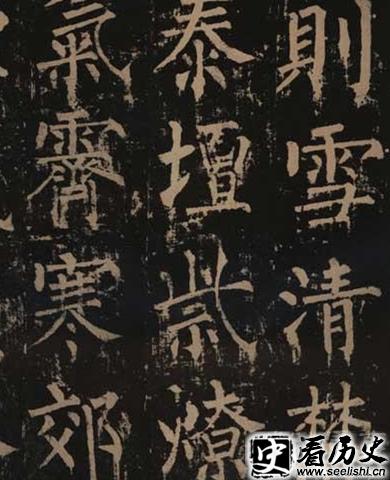 則雪清
泰壇祡燎
氣霽寒郊
史 看历史
www.seelishi.cn